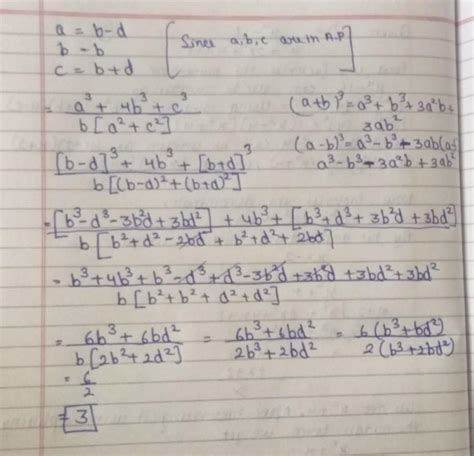 a = b-d
b = b
c = b+d
[Since a,b,c are in A.P]
= a³ + 4b³ + c³ / b[a² + c²]
(a+b)³ = a³ + b³ + 3a²b + 3ab²
(a-b)³ = a³ - b³ - 3ab(a-
a³ - b³ - 3a²b + 3ab²
[b-d]³ + 4b³ + [b+d]³ / b[(b-d)² + (b+d)²]
= [b³ - d³ - 3b²d + 3bd²] + 4b³ + [b³ + d³ + 3b²d + 3bd²] / b[b² + d² - 2bd + b² + d² + 2bd]
= b³ + 4b³ + b³ - d³ + d³ - 3b²d + 3b²d + 3bd² + 3bd² / b[b² + b² + d² + d²]
= 6b³ + 6bd² / b[2b² + 2d²] = 6b³ + 6bd² / 2b³ + 2bd² = 6(b³ + bd²) / 2(b³ + 2bd²)
= 6/2
= 3